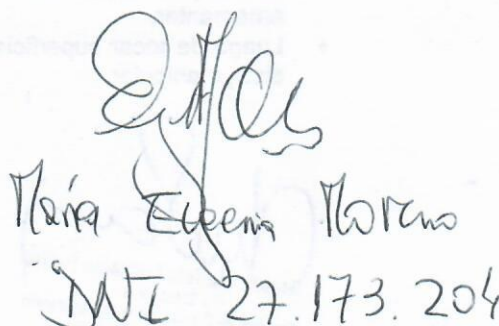 María Eugenia Moreno
DNI 27.173.204